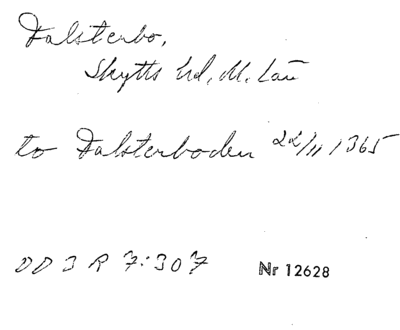 Falsterbo,
Skytts hd, M. län
to Falsterboden 22/11 1365
DD 3 R 7:307
Nr 12628